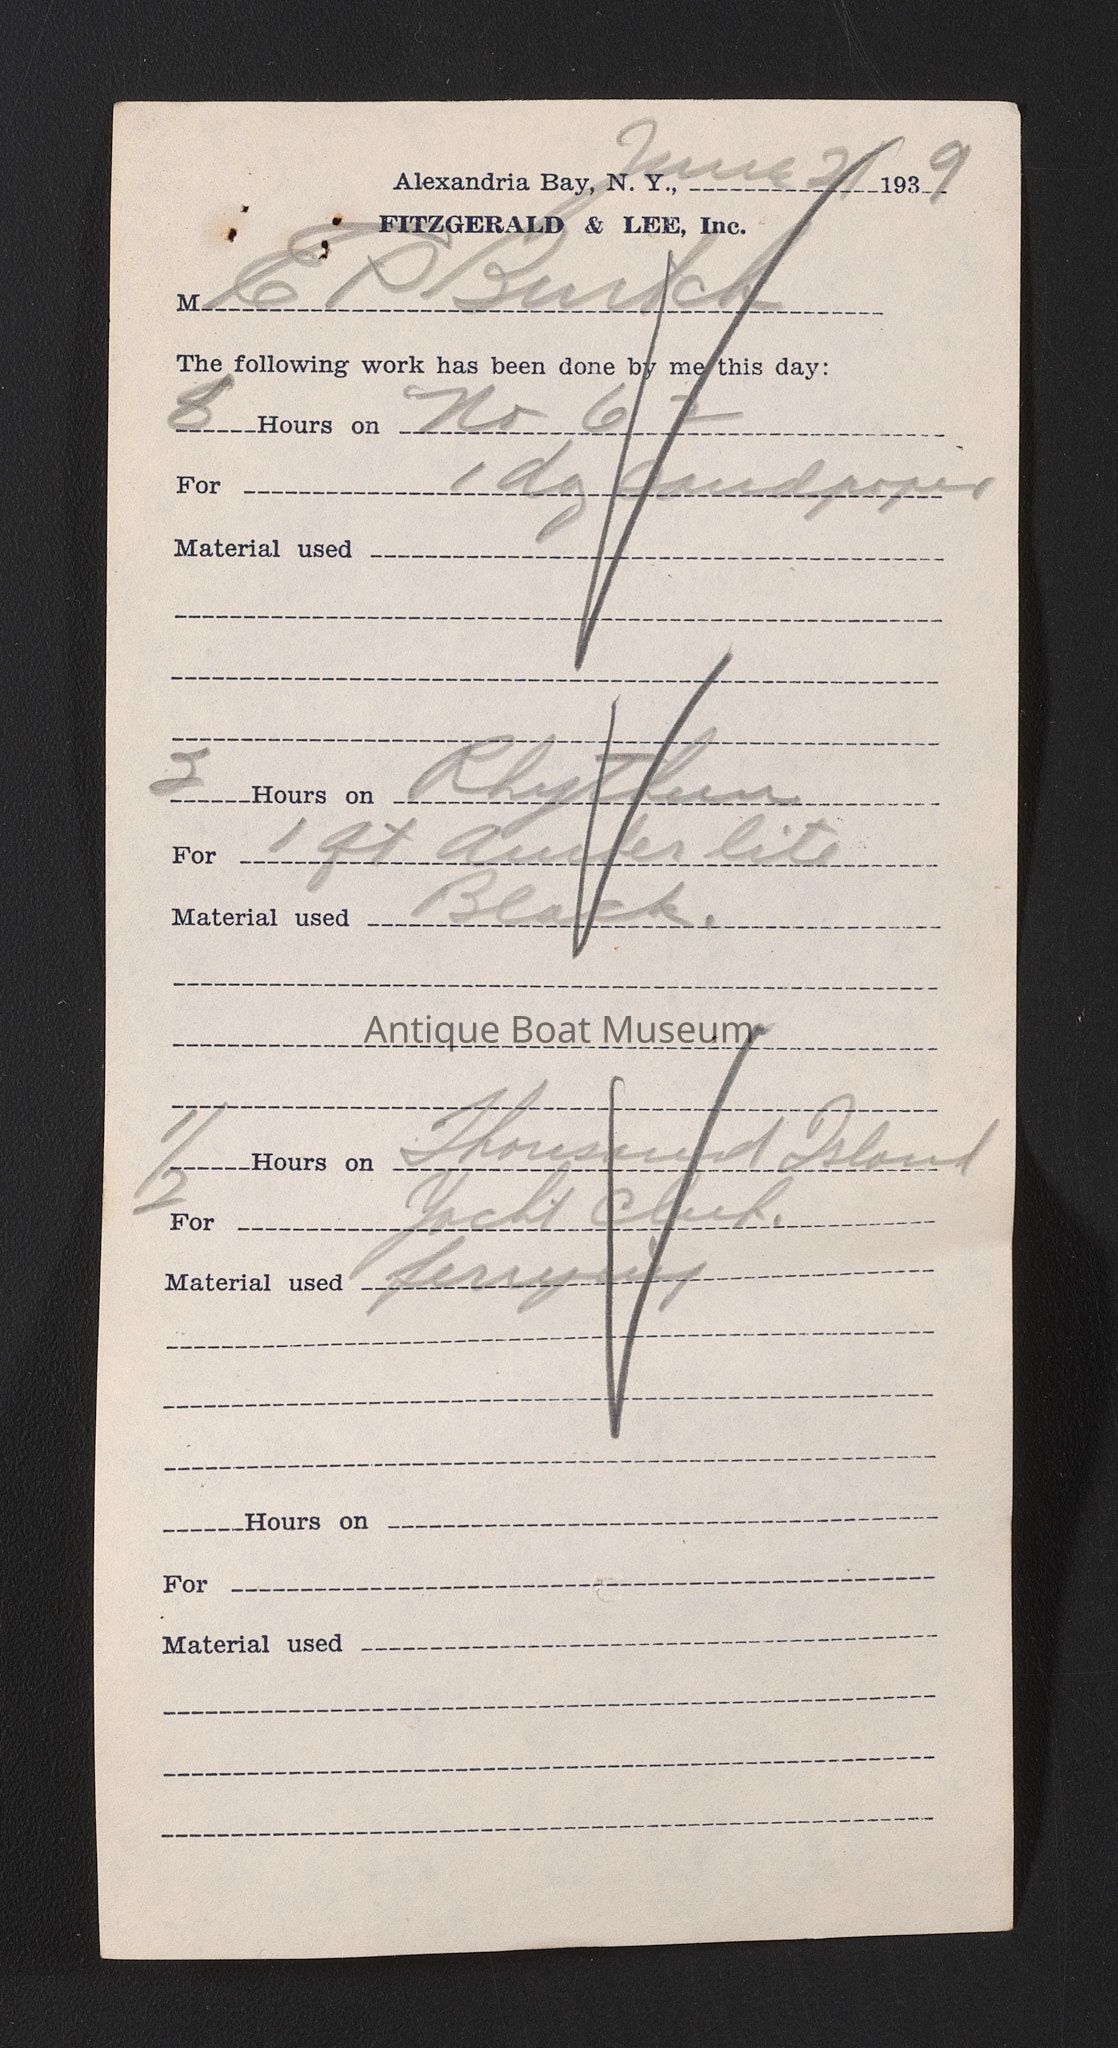 June 21
Alexandria Bay, N. Y., 1939
FITZGERALD & LEE, Inc.
M E P Burtch
The following work has been done by me this day:
8 Hours on No 62
For 1 dg sandpaper
Material used
Hours on Rhythm
For 1 qt lite
Material used Black.
Antique Boat Museum
1/2 Hours on Thousand Island
For Yacht Club.
Material used ferrying
Hours on
For
Material used